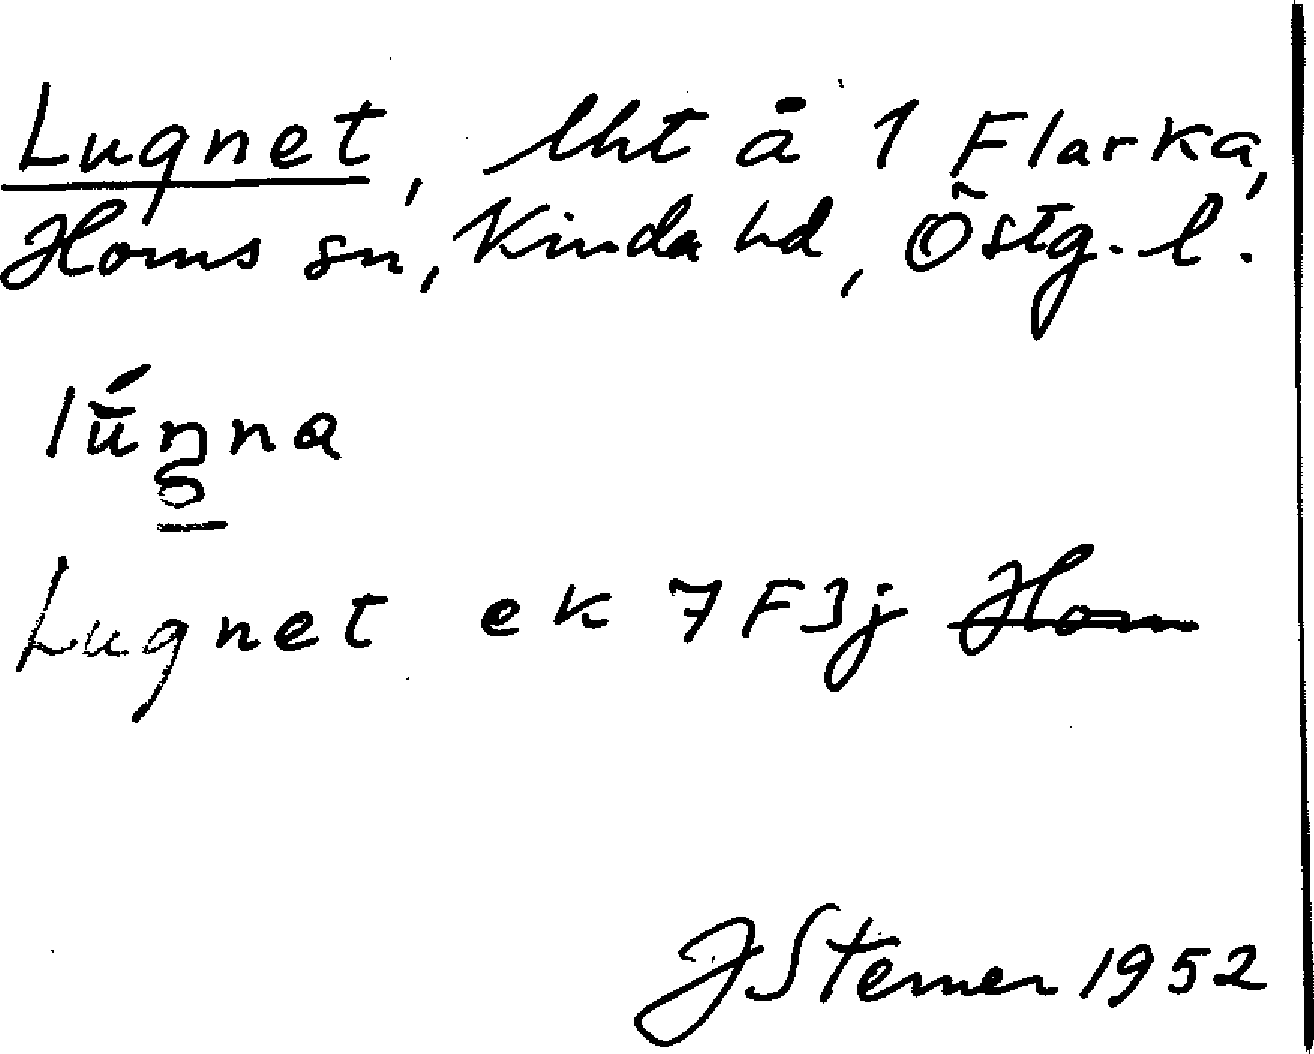 Lugnet, lht å 1 Flarka,
Horns sn, Kinda hd, Östg. l.
Lugnet ek 7F3j Horn
JSterner 1952